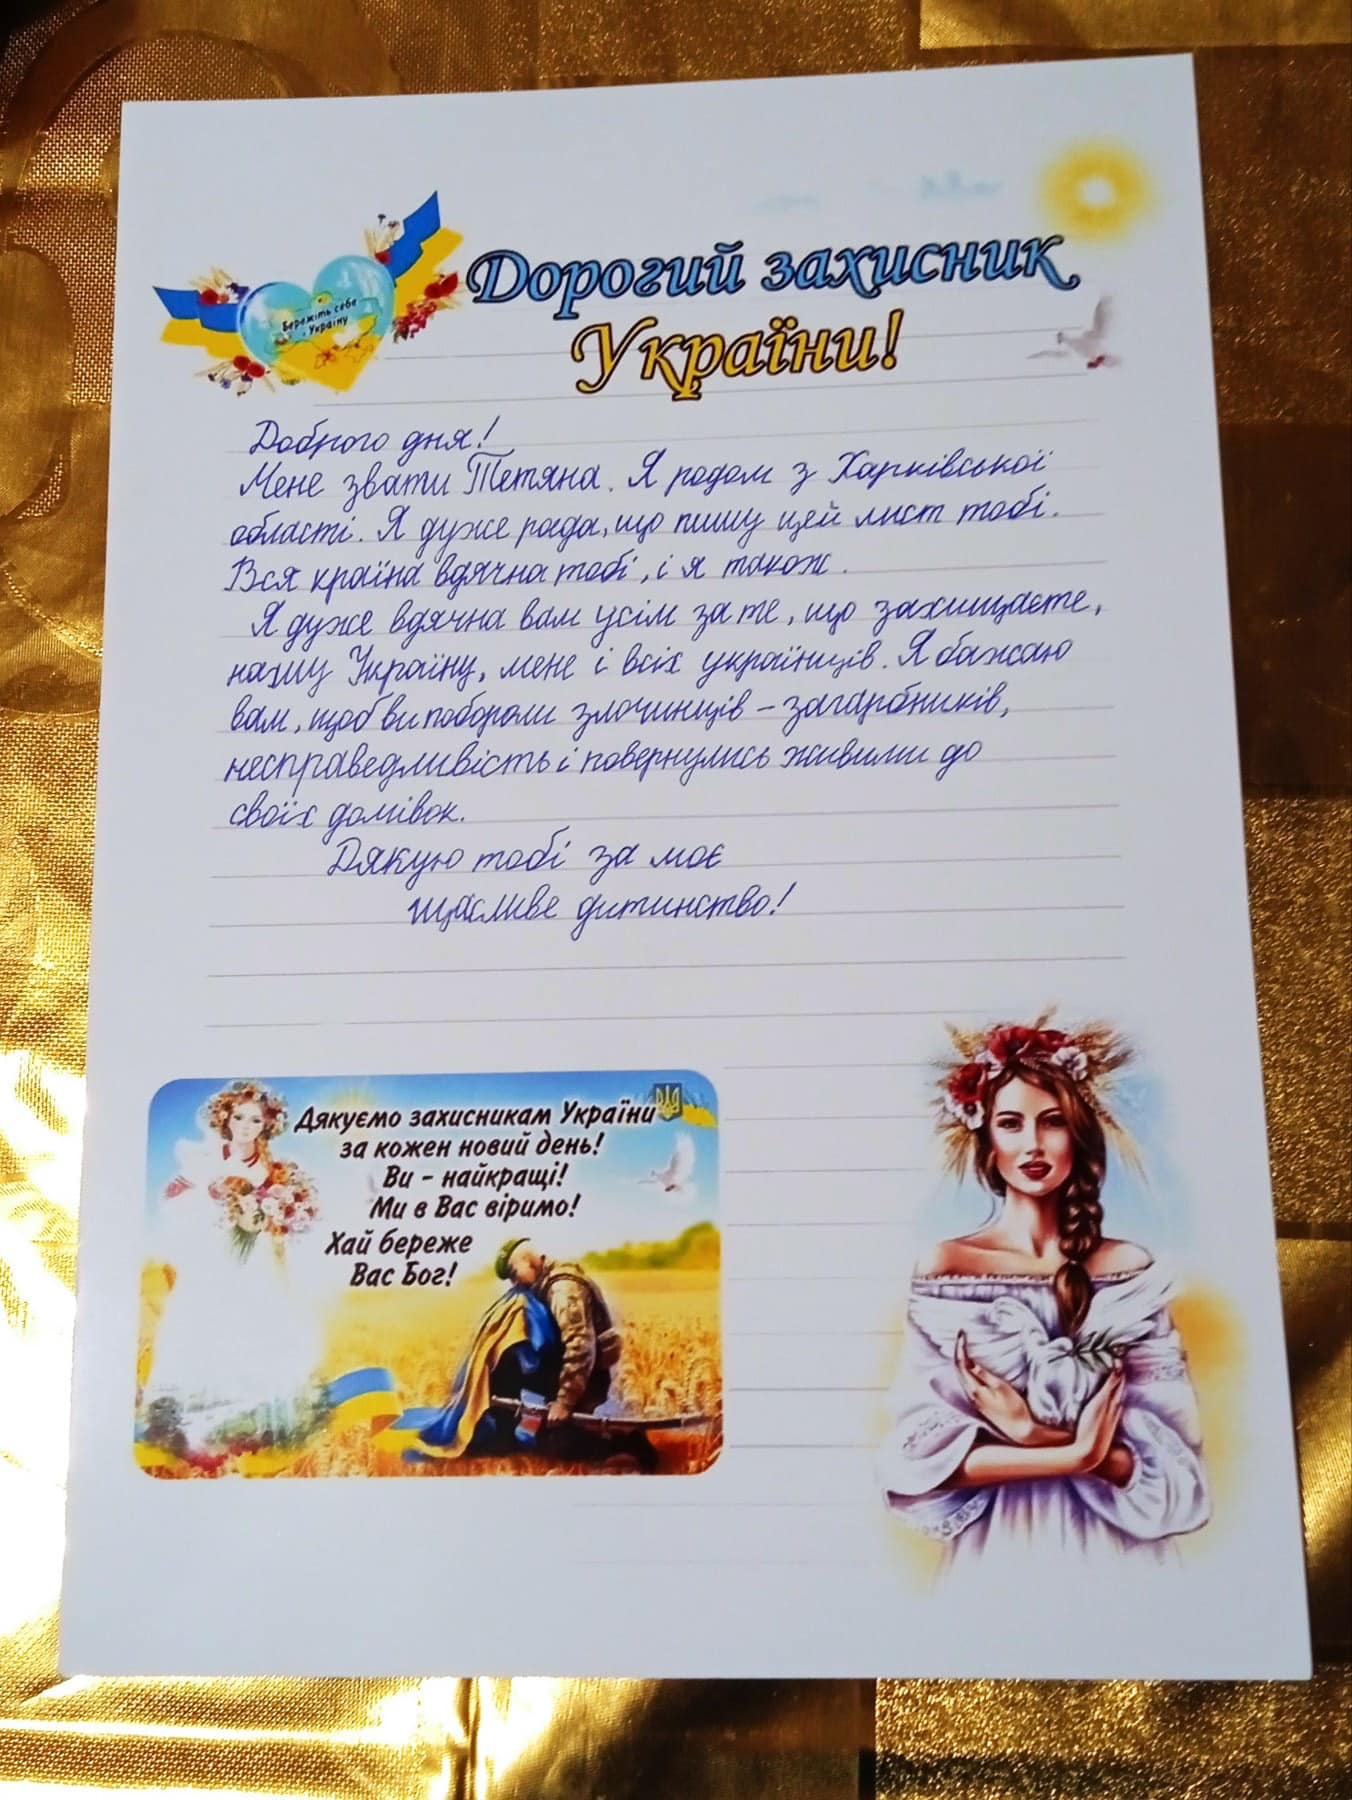 Бережіть себе
і Україну
Дорогий захисник
України!
Доброго дня!
Мене звати Тетяна. Я родом з Харківської
області. Я дуже рада, що пишу цей лист тобі.
Вся країна вдячна тобі, і я також.
Я дуже вдячна вам усім за те, що захищаєте,
нашу Україну, мене і всіх українців. Я бажаю
вам, щоб ви побороли злочинців – загарбників,
несправедливість і повернулись живими до
своїх домівок.
Дякую тобі за моє
щасливе дитинство!
Дякуємо захисникам України
за кожен новий день!
Ви - найкращі!
Ми в Вас віримо!
Хай береже
Вас Бог!